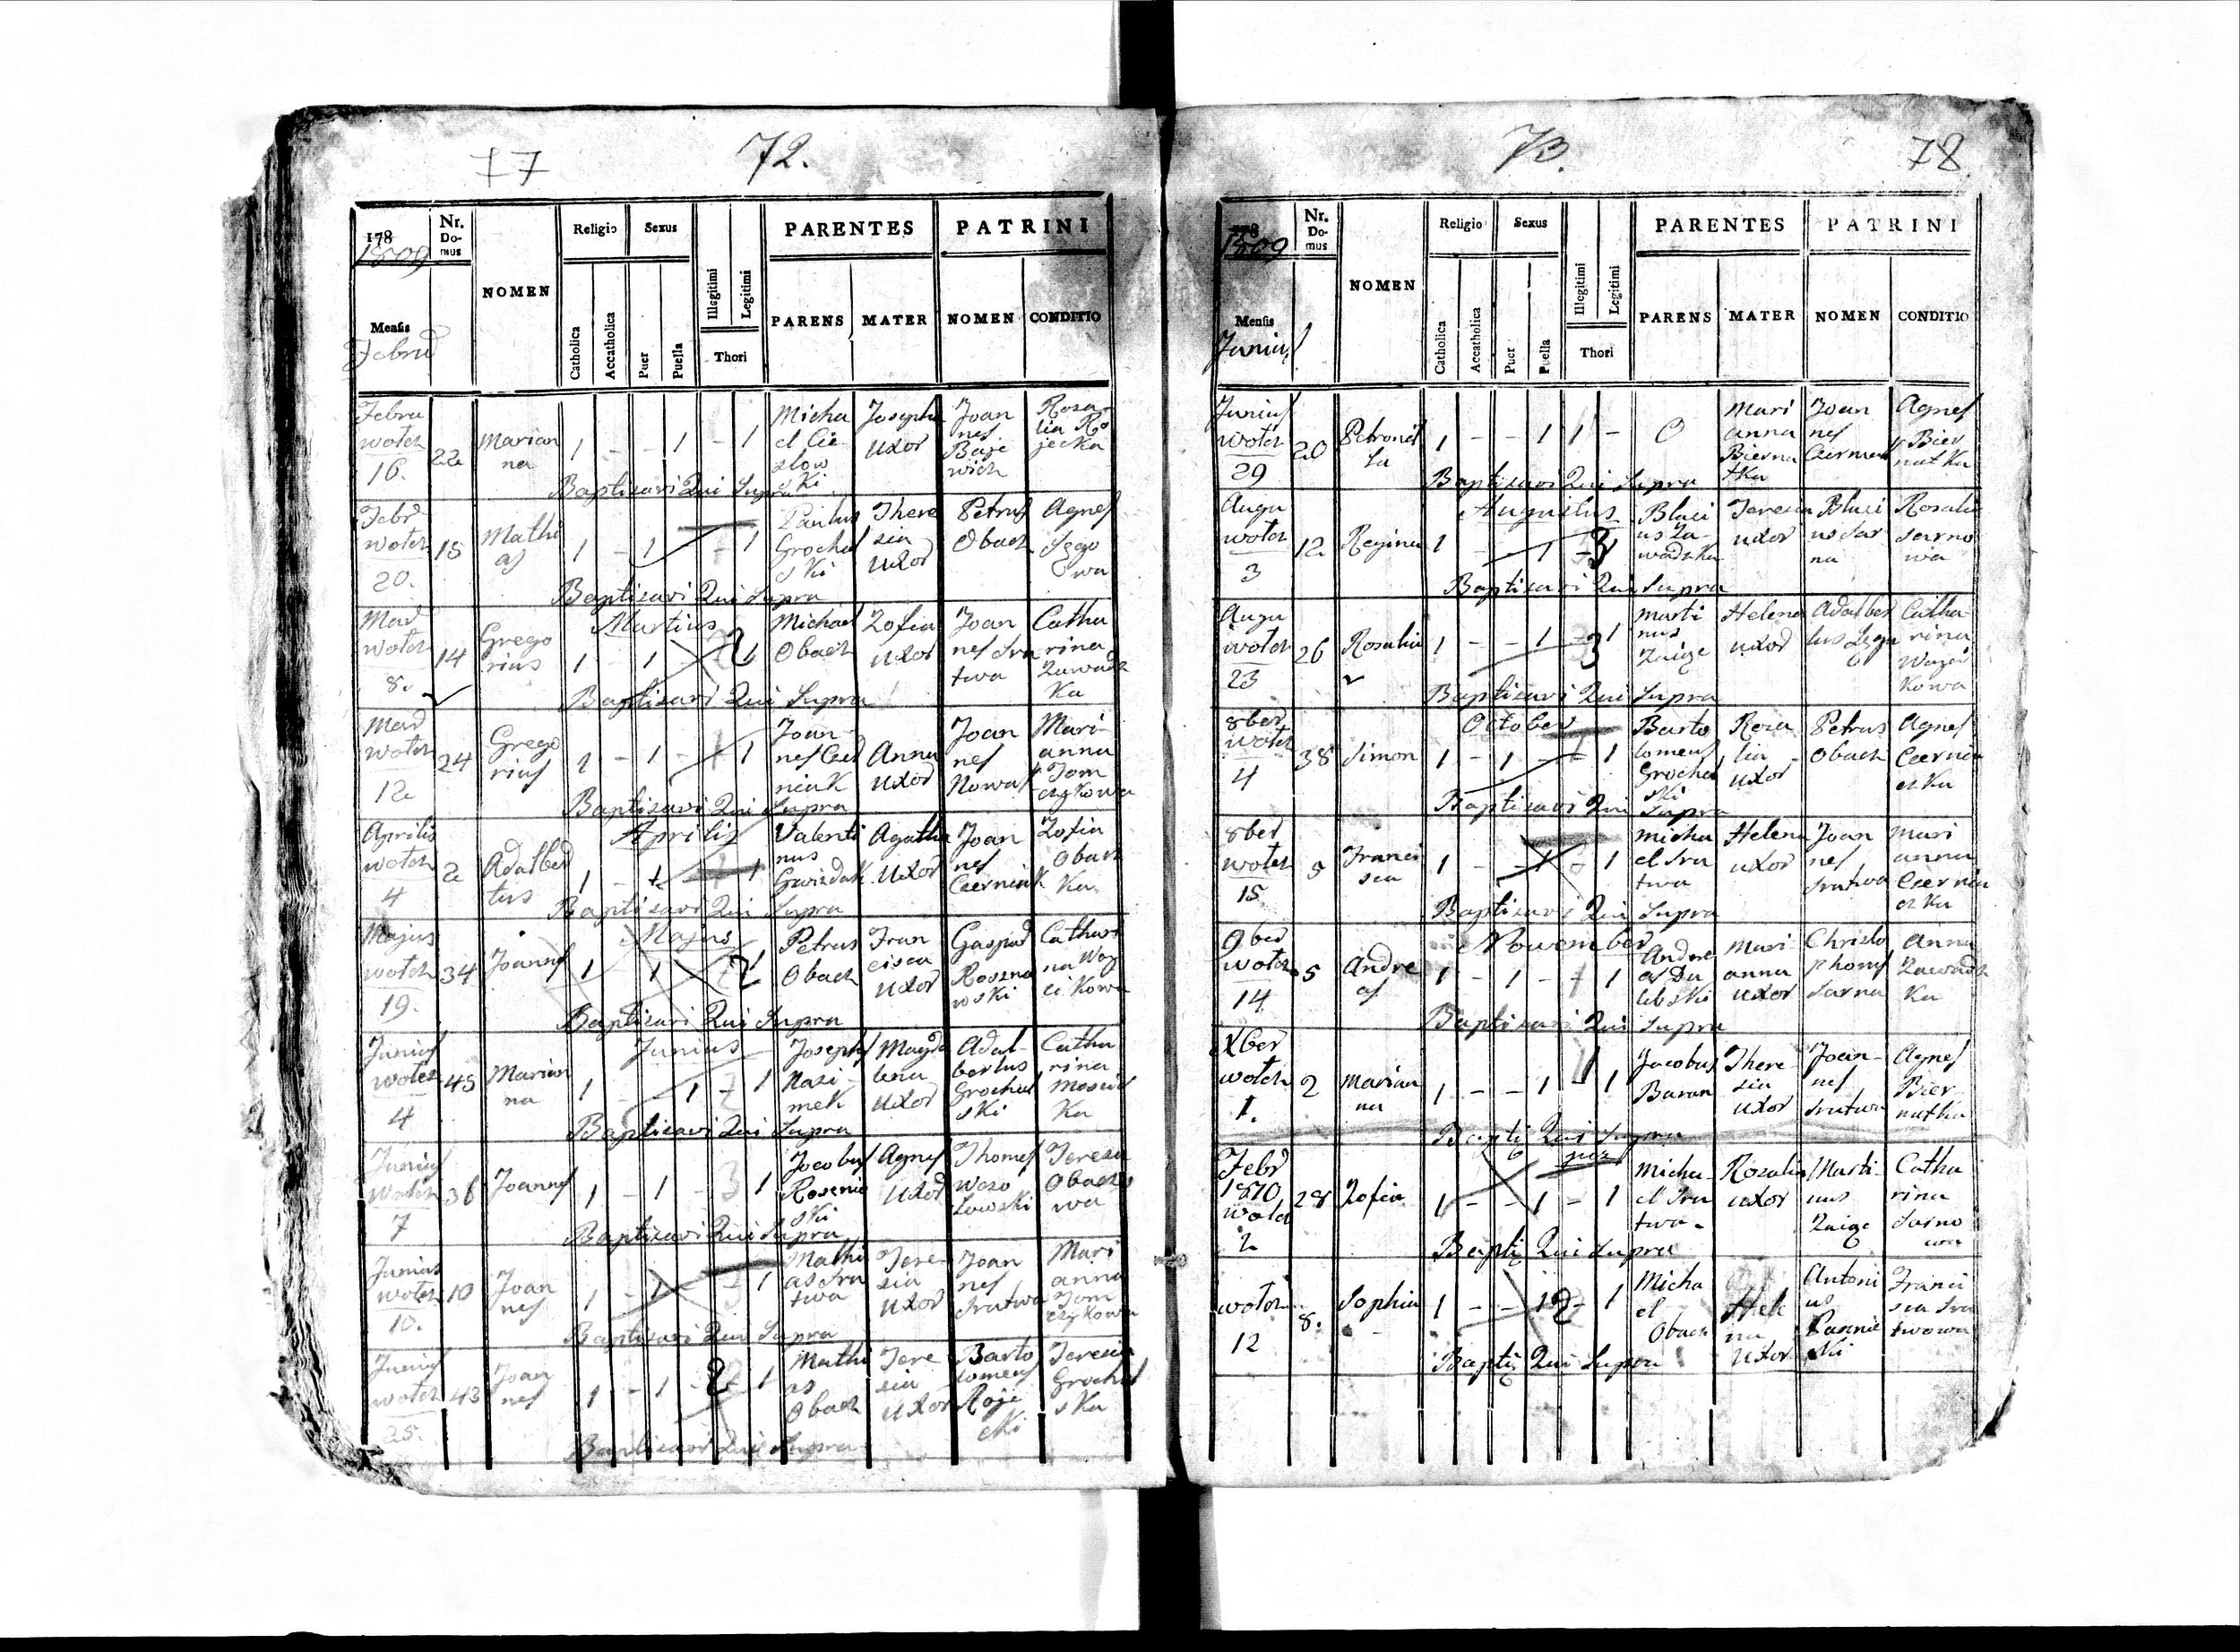 77
72.
178
1809
Nr. Domus
NOMEN
Religio
Sexus
PARENTES
PATRINI
Mensis
Febru
Catholica
Accatholica
Puer
Puella
Illegitimi
Legitimi
Thori
PARENS
MATER
NOMEN
CONDITIO
Febru woter 16. 22 Marianna 1 - - 1 - 1 Michael Cieslowski Josepha uxor Joannes Rosalia Rojecka
Baptisavi Qui Supra
Febr woter 20. 15 Mathias 1 - 1 - 1 Paulus Grochalski Theresia uxor Petrus Obach Agnes
Baptisavi Qui Supra
Martius
Mar woter 8. 14 Gregorius 1 1 2 1 Michael Obach Zofia uxor Joannes Sratwa Catharina Zawadzka
Baptisavi Qui Supra
Mar woter 12 24 Gregorius 1 - 1 - 1 Joannes Czerniak Anna uxor Joannes Nowak Marianna Tomczykowa
Baptisavi Qui Supra
Aprilis
Aprilis woter 4 2 Adalbertus 1 - 1 1 Valentinus Gwizdak Agatha uxor Joannes Czerniak Zofia Obachka
Baptisavi Qui Supra
Majus
Majus woter 19. 34 Joannes 1 1 2 Petrus Obach Francisca uxor Gaspar Catharina
Baptisavi Qui Supra
Junius
Junius woter 4 45 Marianna 1 - 1 - 1 Josephus Nazimek Magdalena uxor Adalbertus Grochalski Catharina
Baptisavi Qui Supra
Junius woter 7 36 Joannes 1 - 1 - 3 1 Jacobus Agnes uxor Thomas Teresa
Baptisavi Qui Supra
Junius woter 10. 10 Joannes 1 - 1 - 1 Mathias Sratwa Teresia uxor Joannes Sratwa Marianna Tomczykowa
Baptisavi Qui Supra
Junius woter 25. 43 Joannes 1 - 1 - 2 1 Mathias Obach Teresia uxor Bartolomeus Rojecki Teresia Grochalska
Baptisavi Qui Supra
73.
78
178
1809
Nr. Domus
NOMEN
Religio
Sexus
PARENTES
PATRINI
Mensis
Junius
Catholica
Accatholica
Puer
Puella
Illegitimi
Legitimi
Thori
PARENS
MATER
NOMEN
CONDITIO
Junius woter 29 20 Petronella 1 - - 1 1 - O Marianna Biernatka Joannes Agnes Biernatka
Baptisavi Qui Supra
Augustus
Augu woter 3 12 Regina 1 - 1 - 3 Blasius Zawadzka Teresia uxor Blasius Sarna Rosalia Sarnowa
Baptisavi Qui Supra
Augu woter 23 26 Rosalia 1 - - 1 - 3 1 Martinus Zaige Helena uxor Adalbertus Catharina
Baptisavi Qui Supra
October
8ber woter 4 38 Simon 1 - 1 - 1 Bartolomeus Grochalski Rozalia uxor Petrus Obach Agnes
Baptisavi Qui Supra
8ber woter 15. 5 Francisca 1 - - 1 - 1 Michael Sratwa Helena uxor Joannes Sratwa Marianna
Baptisavi Qui Supra
November
9ber woter 14 5 Andreas 1 - 1 - 1 Andreas Dulebski Marianna uxor Christophorus Sarna Anna Zawadzka
Baptisavi Qui Supra
Xber woter 1. 2 Marianna 1 - - 1 - 1 Jacobus Baran Theresia uxor Joannes Sratwa Agnes Biernatka
Bapti Qui Supra
Febr 1810 woter 2 28 Zofia 1 - - 1 - 1 Michael Sratwa Rosalia uxor Martinus Zaige Catharina Sarnowa
Bapti Qui Supra
woter 12 8. Sophia 1 - - 1 2 - 1 Michael Obach Helena uxor Antonius Francisca Sratwowa
Bapti Qui Supra